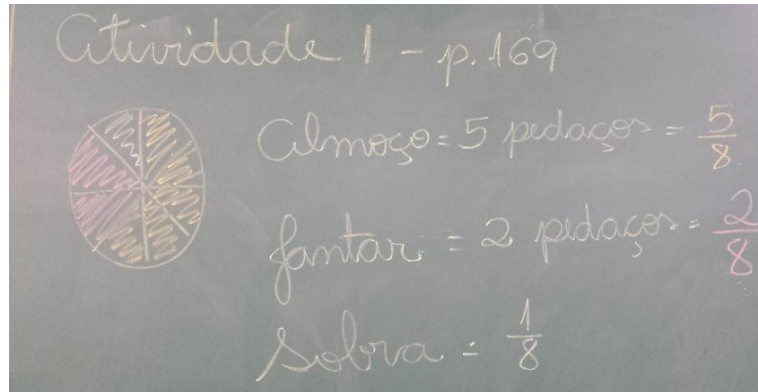 Atividade 1 - p. 169
Almoço = 5 pedaços = 5/8
Jantar = 2 pedaços = 2/8
Sobra = 1/8